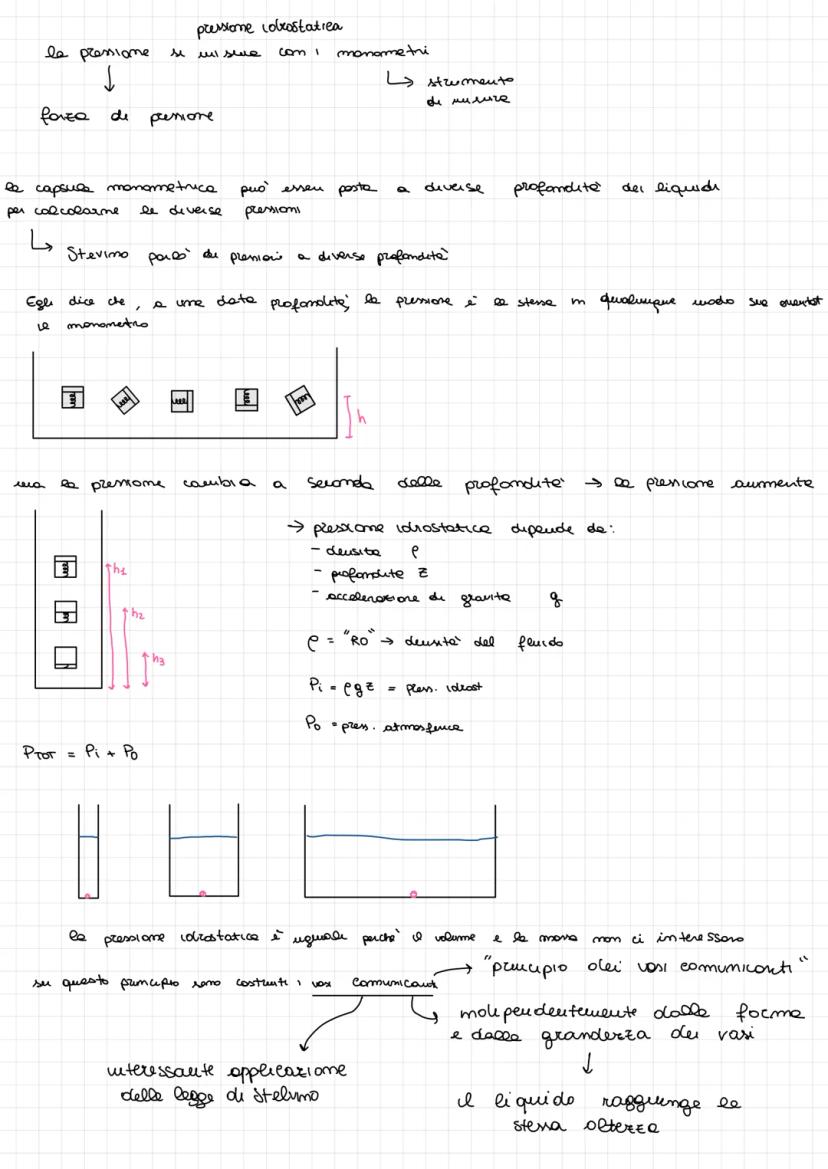 pressione idrostatica
la pressione si misura con i monometri
strumento
di misura
forza di pressione
la capsula monometrica può essere posta a diverse profondità dei liquidi
per calcolarne le diverse pressioni
Stevino parlò di pressioni a diverse profondità
Egli dice che, a una data profondità, la pressione è la stessa in qualunque modo sia orientat
il monometro
h
ma la pressione cambia a seconda della profondità → la pressione aumenta
→ pressione idrostatica dipende da:
- densita ρ
- profondita z
- accelerazione di gravita g
h1
h2
h3
ρ = "RO" → densità del fluido
Pi = ρgz = press. idrost
Po = press. atmosferica
PTOT = Pi + Po
la pressione idrostatica è uguale perchè il volume e la massa non ci interessano
"principio dei vasi comunicanti"
su questo principio sono costruiti i vasi comunicanti
indipendentemente dalla forma
e dalla grandezza dei vasi
interessante applicazione
della legge di Stelvino
il liquido raggiunge la
stessa altezza